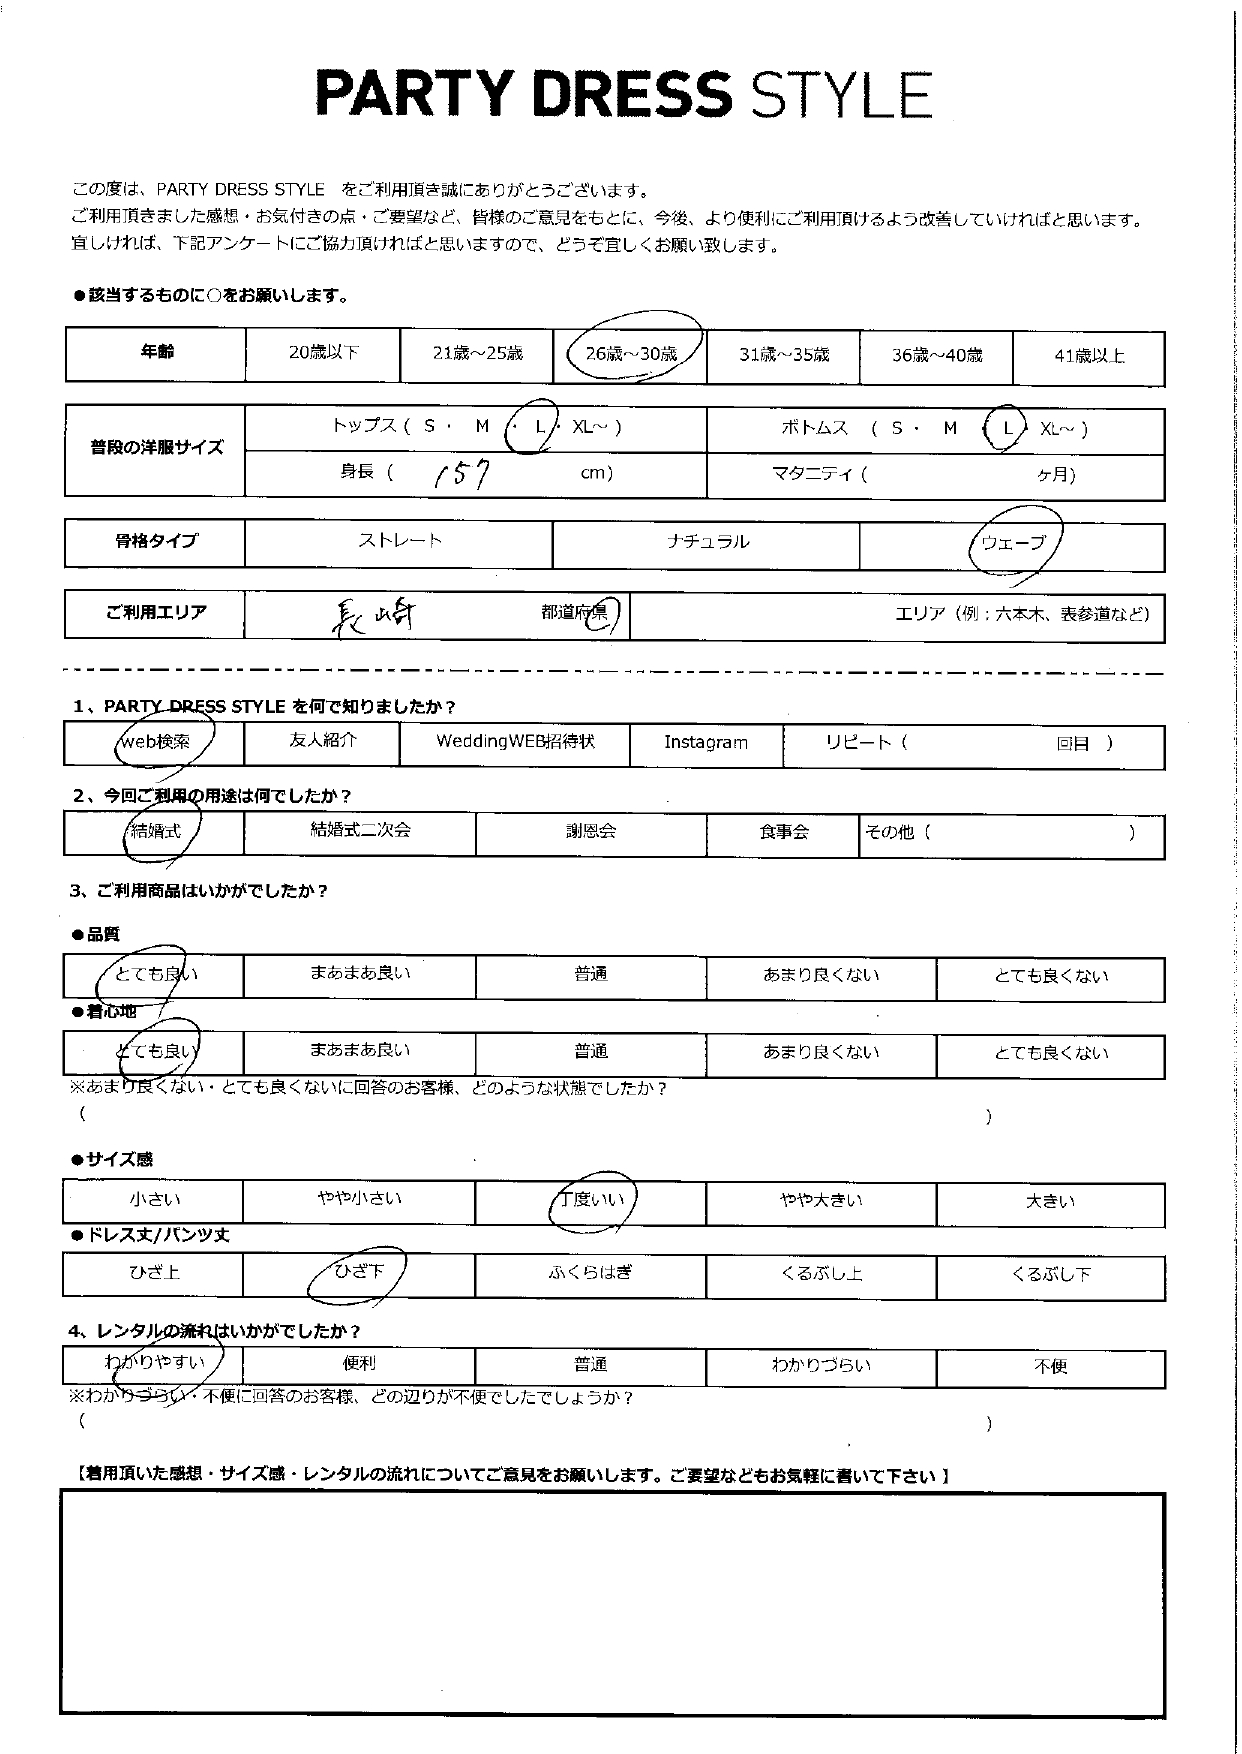 PARTY DRESS STYLE
この度は、PARTY DRESS STYLE をご利用頂き誠にありがとうございます。
ご利用頂きました感想・お気付きの点・ご要望など、皆様のご意見をもとに、今後、より便利にご利用頂けるよう改善していければと思います。
宜しければ、下記アンケートにご協力頂ければと思いますので、どうぞ宜しくお願い致します。
●該当するものに○をお願いします。
年齢 20歳以下 21歳～25歳 26歳～30歳 31歳～35歳 36歳～40歳 41歳以上
普段の洋服サイズ トップス ( S ・ M ・ L ・ XL～ ) ボトムス ( S ・ M ・ L ・ XL～ )
身長 ( 157 cm) マタニティ ( ヶ月)
骨格タイプ ストレート ナチュラル ウェーブ
ご利用エリア 長崎 都道府県 エリア（例；六本木、表参道など）
1、PARTY DRESS STYLE を何で知りましたか？
web検索 友人紹介 WeddingWEB招待状 Instagram リピート ( 回目 )
2、今回ご利用の用途は何でしたか？
結婚式 結婚式二次会 謝恩会 食事会 その他 ( )
3、ご利用商品はいかがでしたか？
●品質
とても良い まあまあ良い 普通 あまり良くない とても良くない
●着心地
とても良い まあまあ良い 普通 あまり良くない とても良くない
※あまり良くない・とても良くないに回答のお客様、どのような状態でしたか？
( )
●サイズ感
小さい やや小さい 丁度いい やや大きい 大きい
●ドレス丈/パンツ丈
ひざ上 ひざ下 ふくらはぎ くるぶし上 くるぶし下
4、レンタルの流れはいかがでしたか？
わかりやすい 便利 普通 わかりづらい 不便
※わかりづらい・不便に回答のお客様、どの辺りが不便でしたでしょうか？
( )
【着用頂いた感想・サイズ感・レンタルの流れについてご意見をお願いします。ご要望などもお気軽に書いて下さい】